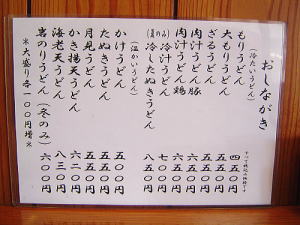 おしながき
すべて税込の価格です
(冷たいうどん)
もりうどん 四五〇円
大もりうどん 五五〇円
ざるうどん 五五〇円
肉汁うどん豚 六五〇円
肉汁うどん鶏 六五〇円
冷汁うどん 七〇〇円
冷したぬきうどん 八五〇円
(温かいうどん)
かけうどん 五〇〇円
たぬきうどん 五五〇円
月見うどん 五五〇円
かき揚天うどん 六二〇円
海老天うどん 八三〇円
岩のりうどん(冬のみ) 六〇〇円
※大盛り各一〇〇円増※